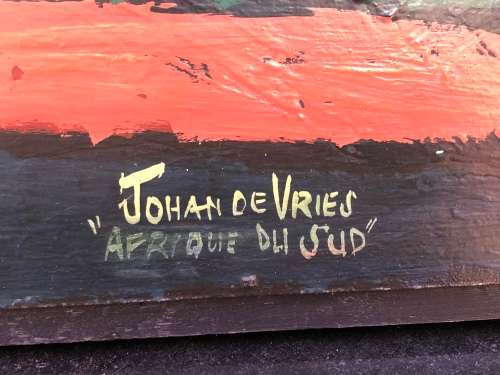 JOHAN DE VRIES
"AFRIQUE DU SUD"